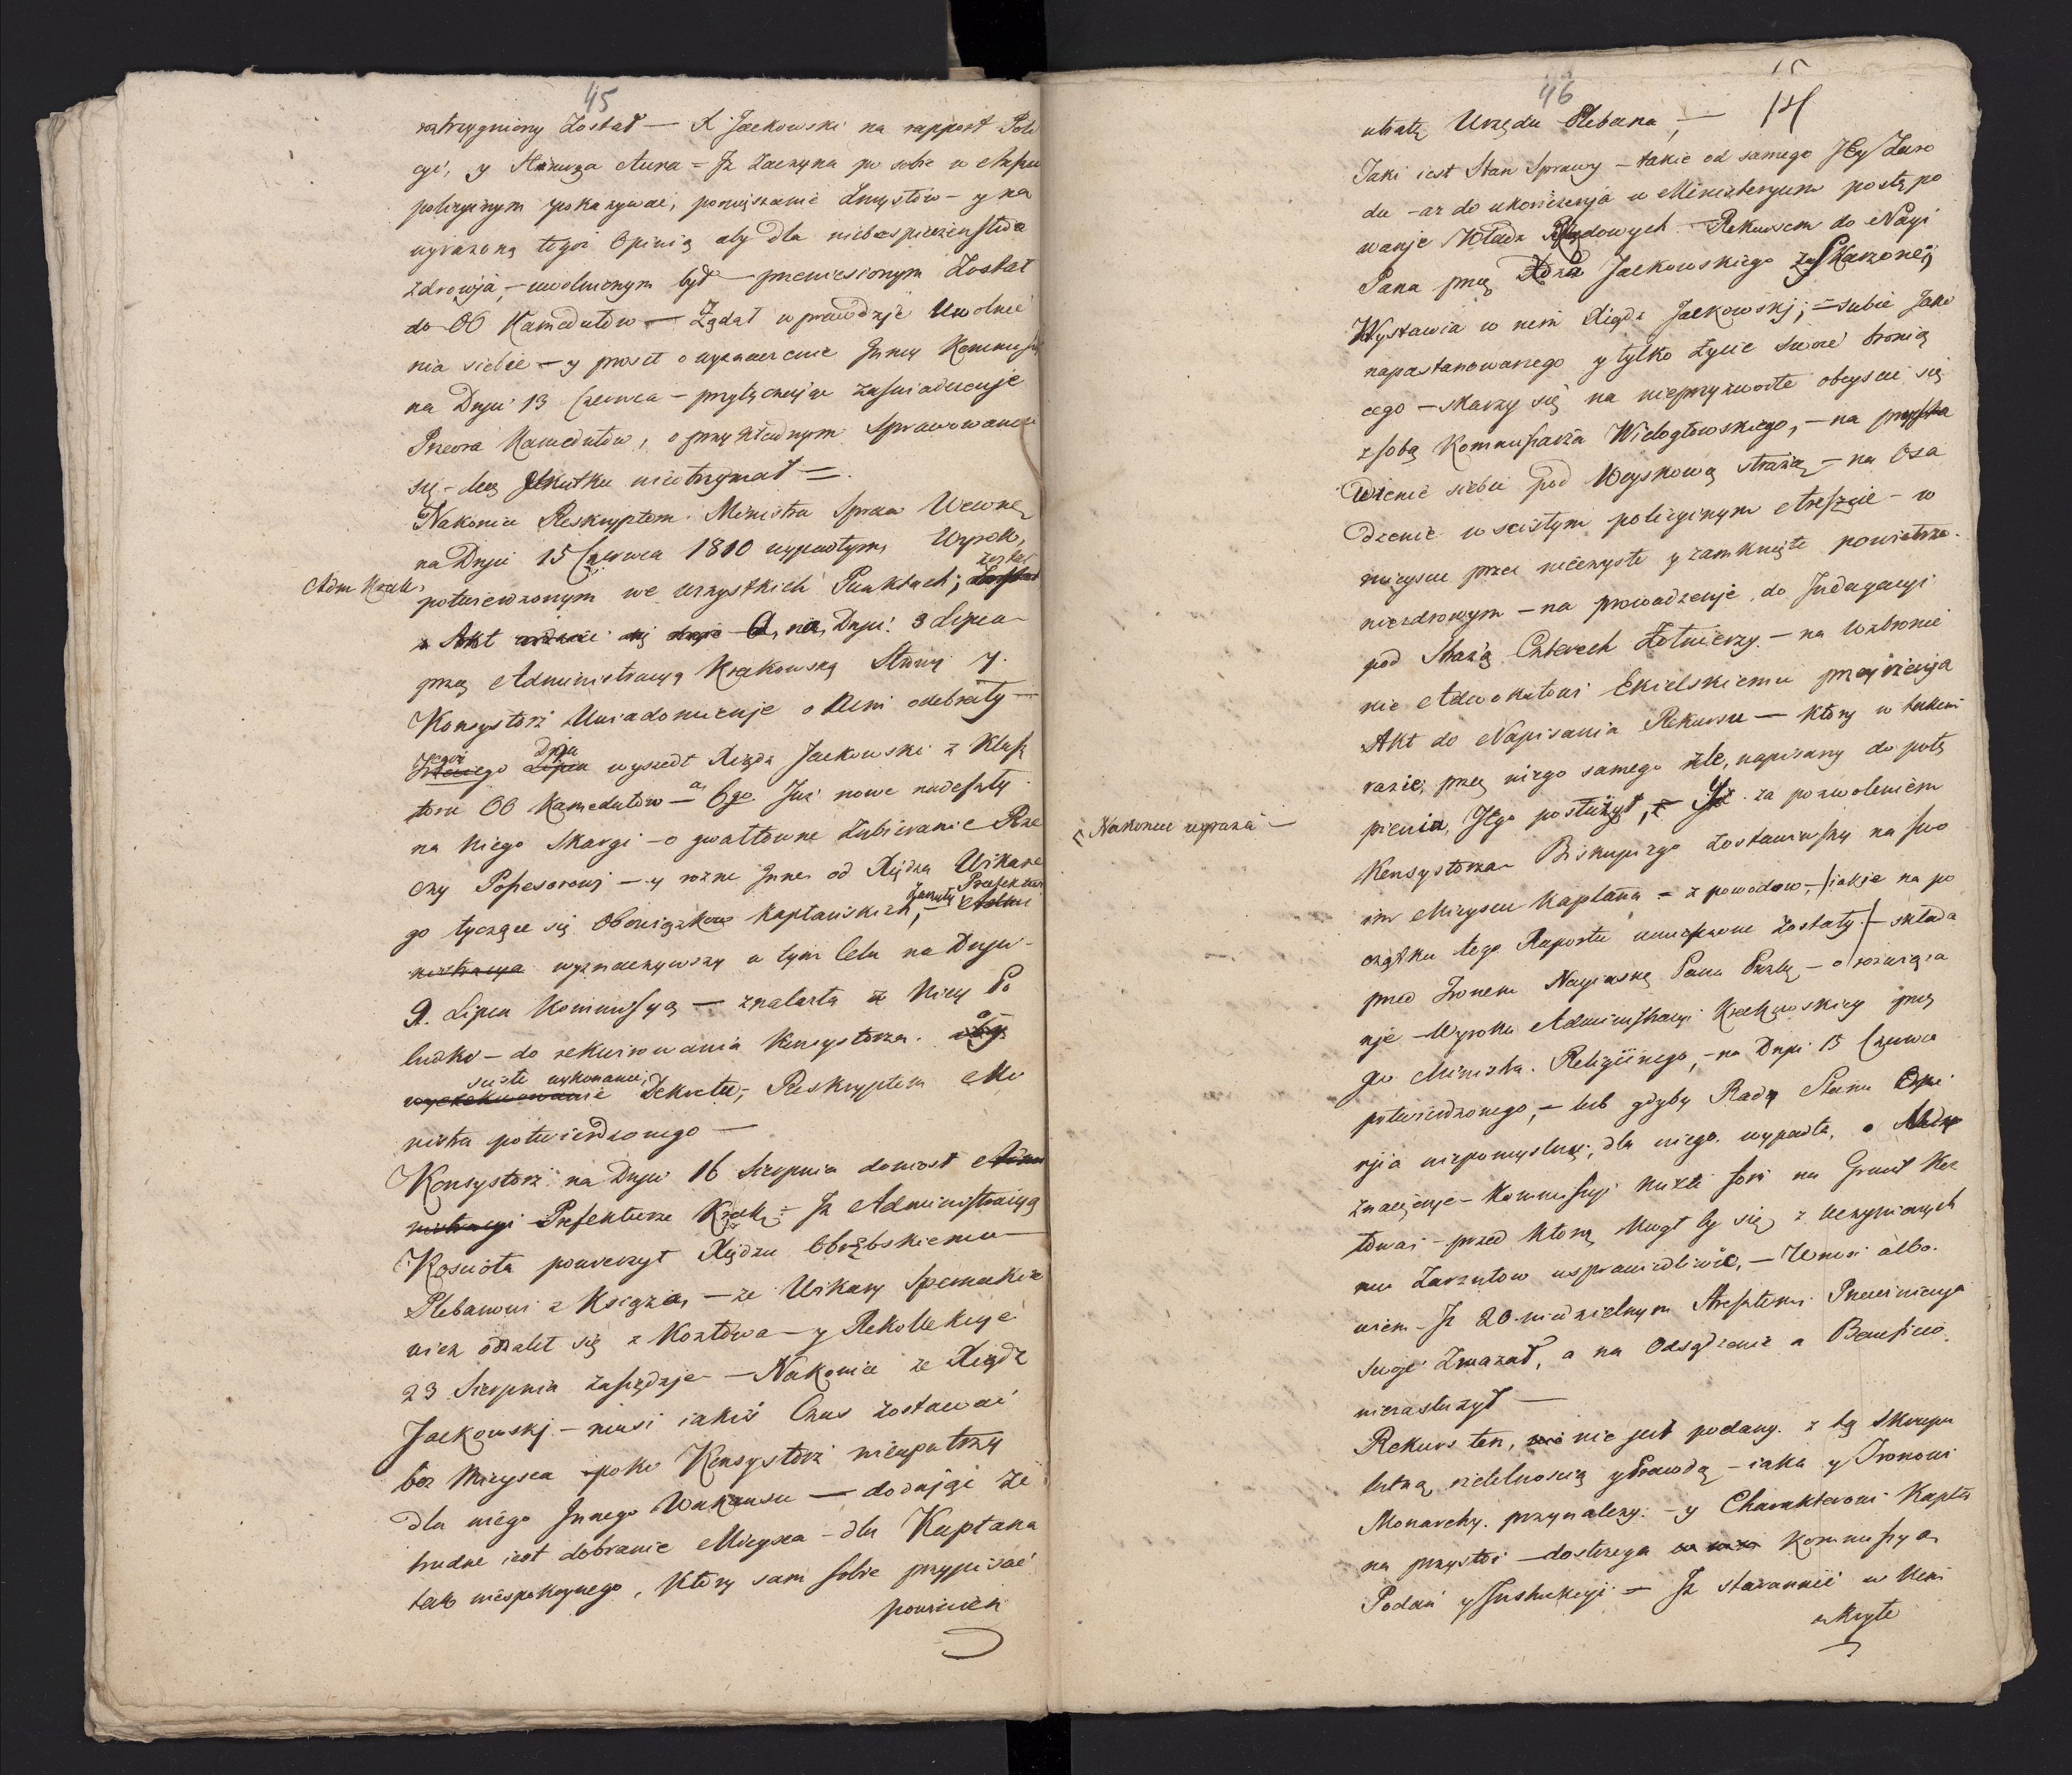 45
roztrzygniony został — X Jackowski na rapport Poli
cyi, y Stanu
policyinym pokazywać, pomięszanie Zmysłów — y na
wyrażoną tegoż Opinią aby dla niebespieczeństwa
zdrowja, — uwolnionym był — przeniesionym został
do OO Kamedułów — Żądał wprawdzje Uwolnie
nia siebie — y prosił o wyznaczenie Inney Kommissyi
na Dnju 13 Czerwca — przyłączając zaswiadczenje
Przeora Kamedułów, o przykładnym Sprawowaniu
się — lecz skutku nieotrzymał =.
Nakoniec Reskryptem Ministra Spraw Wewnę
na Dnju 15 Czerwca 1810 wypadłym, Wyrok,
Adm Krak.
potwierdzonym we wszystkich Punktach; został
Akt na Dnju 3 Lipca
przez Administracyą Krakowską Strony y
Konsystorz Uwiadomienje o Nim odebrały —
tegoż dnja
Lipca wyszedł Xiądz Jackowski z Klasz
toru OO Kamedułów — a 6go Już nowe nadeszły
na Niego Skargi — o gwałtowne Zabieranie Rze
czy Possesorowj — y różne Inne od Xiędza Wikare
go tyczące się Obowiązków Kapłańskich, — Zarzuty Prefektur
wyznaczywszy w tym Celu na Dnju
9. Lipca Kommissyą — znalazła że Nicy Po
budki — do rekwirowania Konsystorza. a
scisłe wykonanie,
Dekretu, Reskryptem Mi
nistra potwierdzonego —
Konsystorz na Dnju 16 Sierpnia doniosł
Prefekturze Krakẹ: Iż Administracyą
Koscioła powierzył Xiędzu Obrębskiemu —
Plebanowi z Książa, — że Wikary
wicz oddalił się z Kozłowa — y Rekollekcye
23 Sierpnia zasiędzje — Nakoniec że Xiądz
Jackowskj — musi iakiś Czas zostawać
bez Mieysca poko Konsystorz nieupatrzy
dla niego Innego Wakansu — dodając że
trudne iest dobranie Mieysca — dla Kapłana
tak niespokoynego, Który sam sobie przypisać
powinien
46
15
14
utratę Urzędu Plebana, —
Jaki iest Stan Sprawy — takie od samego Jey Zaro
du — aż do ukończenja w Ministeryum postępo
wanje Władz Rządowych Rekursem do Nayi
Pana przez Xdza Jackowskiego zaskarzone,
Wystawia w nim Xiądz Jackowskj; — siebie Jako
napastowanego y tylko życie swoie bronią
cego — skarzy się na nieprzyzwoite obeyscie się
z sobą Kommissarza Wielogłowskiego, — na przysta
wienie siebie pod Woyskową strażą — na Osa
dzenie w scisłym policyinym Areszcie — w
mieyscu przez nieczyste y zamknięte powietrze
niezdrowym — na prowadzenje do Indagacyi
pod Strażą Czterech Żołnierzy. — na wzbronie
nie Adwokatowi Ekielskiemu przeyrzenja
Akt do Napisania Rekursu — który w takim
razie, przez niego samego źle, napisany do potę
pienia, Jego posłużył, — Iż za pozwoleniem
Nakoniec wyraża —
Konsystorza Biskupiego Zostawiwszy na swo
im Mieyscu Kapłana — z powodow, — /iakje na po
czątku tego Raportu umieszczone zostały/ — składa
przed Tronem Nayiasnẹ Pana Prozbę — o rozwiąza
nje Wyroku Administracyi Krakowskiey przez
go Ministra Religiinego, — na Dnju 15 Czerwca
potwierdzonego, — lub gdyby Rady Stanu Opi
njia niepomyslną; dla niego wypadła, o
znaczenje — Kommissyj mixti fori na Grunt Koz
łowai — przed Którą Mogł by się z Uczynionych
mu Zarzutow usprawiedliwić, — Wnosi albo
wiem — Iż 20. niedzielnym Aresztem Przewinienja
swoje Zmazał, a na Odsądzenie a Beneficio
niezasłużył —
Rekurs ten, nie jest podany z tą Skrupu
latną rzetelnoscią y Prawdą — iaka y Tronowi
Monarchy. przynależy: — y Charakterowi Kapła
na przystoi — dostrzega Kommissya
Podań y Instrukcyi — Iż starannie w Nim
ukryte